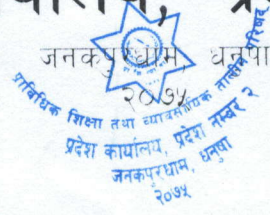 जनकपुरधाम, धनुषा
२०७५
प्राविधिक शिक्षा तथा व्यावसायिक तालीम परिषद
प्रदेश कार्यालय, प्रदेश नम्बर २
जनकपुरधाम, धनुषा
२०७५